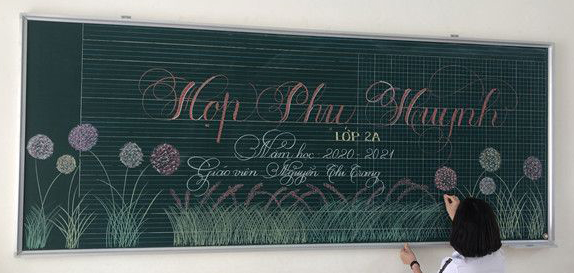 Họp Phụ Huynh
LỚP 2A
Năm học 2020 - 2021
Giáo viên Nguyễn Thị Trang